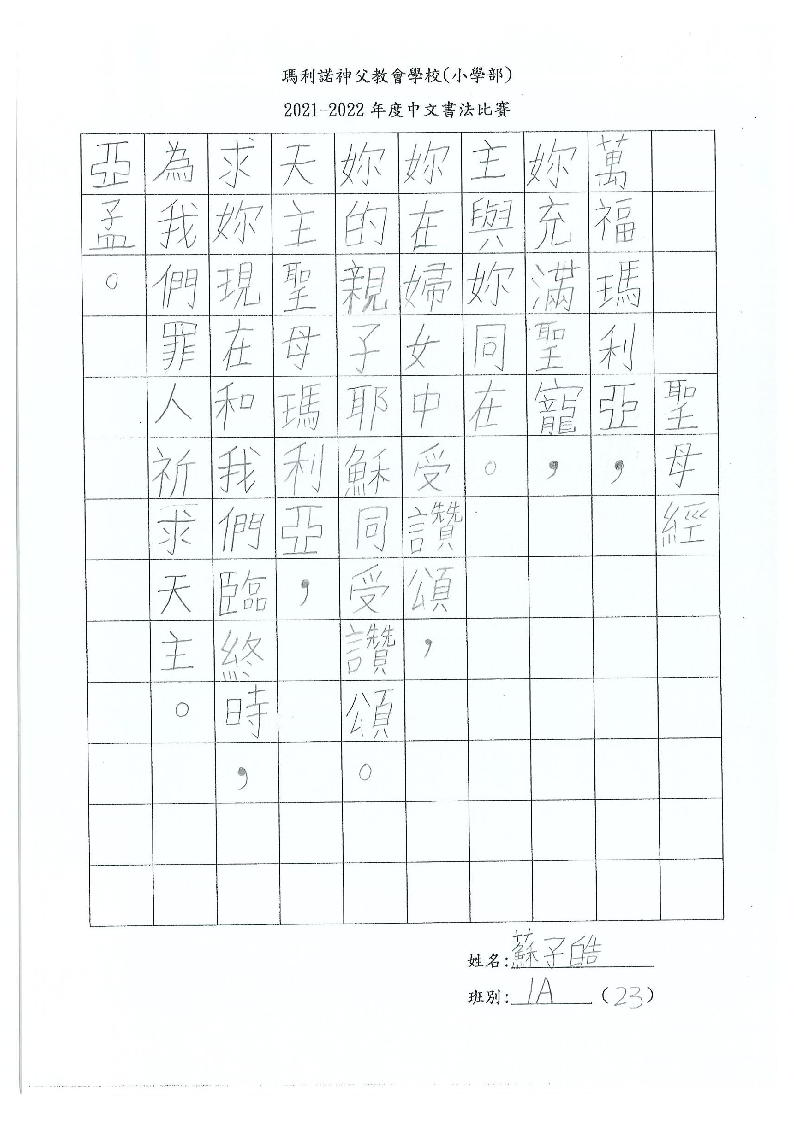 瑪利諾神父教會學校(小學部)
2021-2022年度中文書法比賽
聖母經
萬福瑪利亞,
妳充滿聖寵,
主與妳同在。
妳在婦女中受讚頌,
妳的親子耶穌同受讚頌。
天主聖母瑪利亞,
求妳現在和我們臨終時,
為我們罪人祈求天主。
亞孟。
姓名:蘇子皓
班別:1A(23)